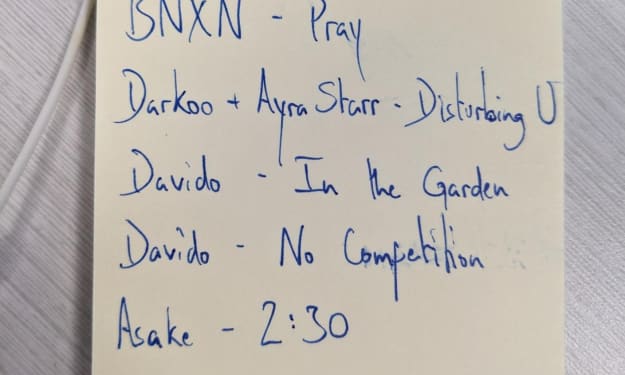 BNXN - Pray
Darkoo + Ayra Starr - Disturbing U
Davido - In the Garden
Davido - No Competition
Asake - 2:30